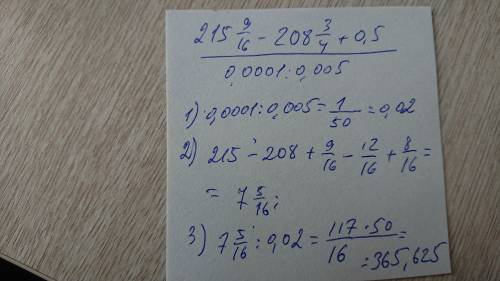 215 9/16 - 208 3/4 + 0,5
0,0001 : 0,005
1) 0,0001 : 0,005 = 1/50 = 0,02
2) 215 - 208 + 9/16 - 12/16 + 8/16 =
= 7 5/16 ;
3) 7 5/16 : 0,02 = 117 · 50/16 =
= 365,625